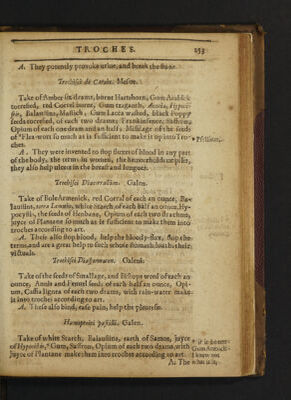 TROCHES. 253
A. They potently provoke urine, and break the stone.
Trochisci de Carabe. Mesue.
Take of Amber six drams, burnt Hartshorn, Gum Arabick
torrefied, red Corral burnt, Gum traganth, Acacia, Hypoci-
stis, Balaustins, Mastich, Gum Lacca washed, black Poppy
seeds torrefied, of each two drams; Frankinsence, Saffron,
Opium of each one dram and an half; Mussilage of the seeds
of Flea-wort so much as is sufficient to make it up into Tro-
ches.
A. They were invented to stop fluxes of blood in any part
of the body, the terms in women, the hemorrhoids or piles,
they also help ulcers in the breast and longues.
Trochisci Diacorallion. Galen.
Take of Bole Armenick, red Corral of each an ounce, Ba-
laustins, terra Lemnia, white Starch of each half an ounce, Hy-
pocystis, the seeds of Henbane, Opium of each two drachms,
juyce of Plantane so much as is sufficient to make them into
troches according to art.
A. These also stop blood, help the bloody-flux, stop the
terms, and are a great help to such whose stomach loaths their
victuals.
Trochisci Diaspermaton. Galen.
Take of the seeds of Smallage, and Bishops weed of each an
ounce, Annis and Fennel seeds of each half an ounce, Opi-
um, Cassia lignea of each two drams, with rain-water make
it into troches according to art.
A. These also bind, ease pain, help the pleuresie.
Hæmoptoici pastilli. Galen.
Take of white Starch, Balaustins, earth of Samos, juyce
of Hypocistis, Gum, Saffron, Opium of each two drams, with
juyce of Plantane make them into troches according to art.
A. The